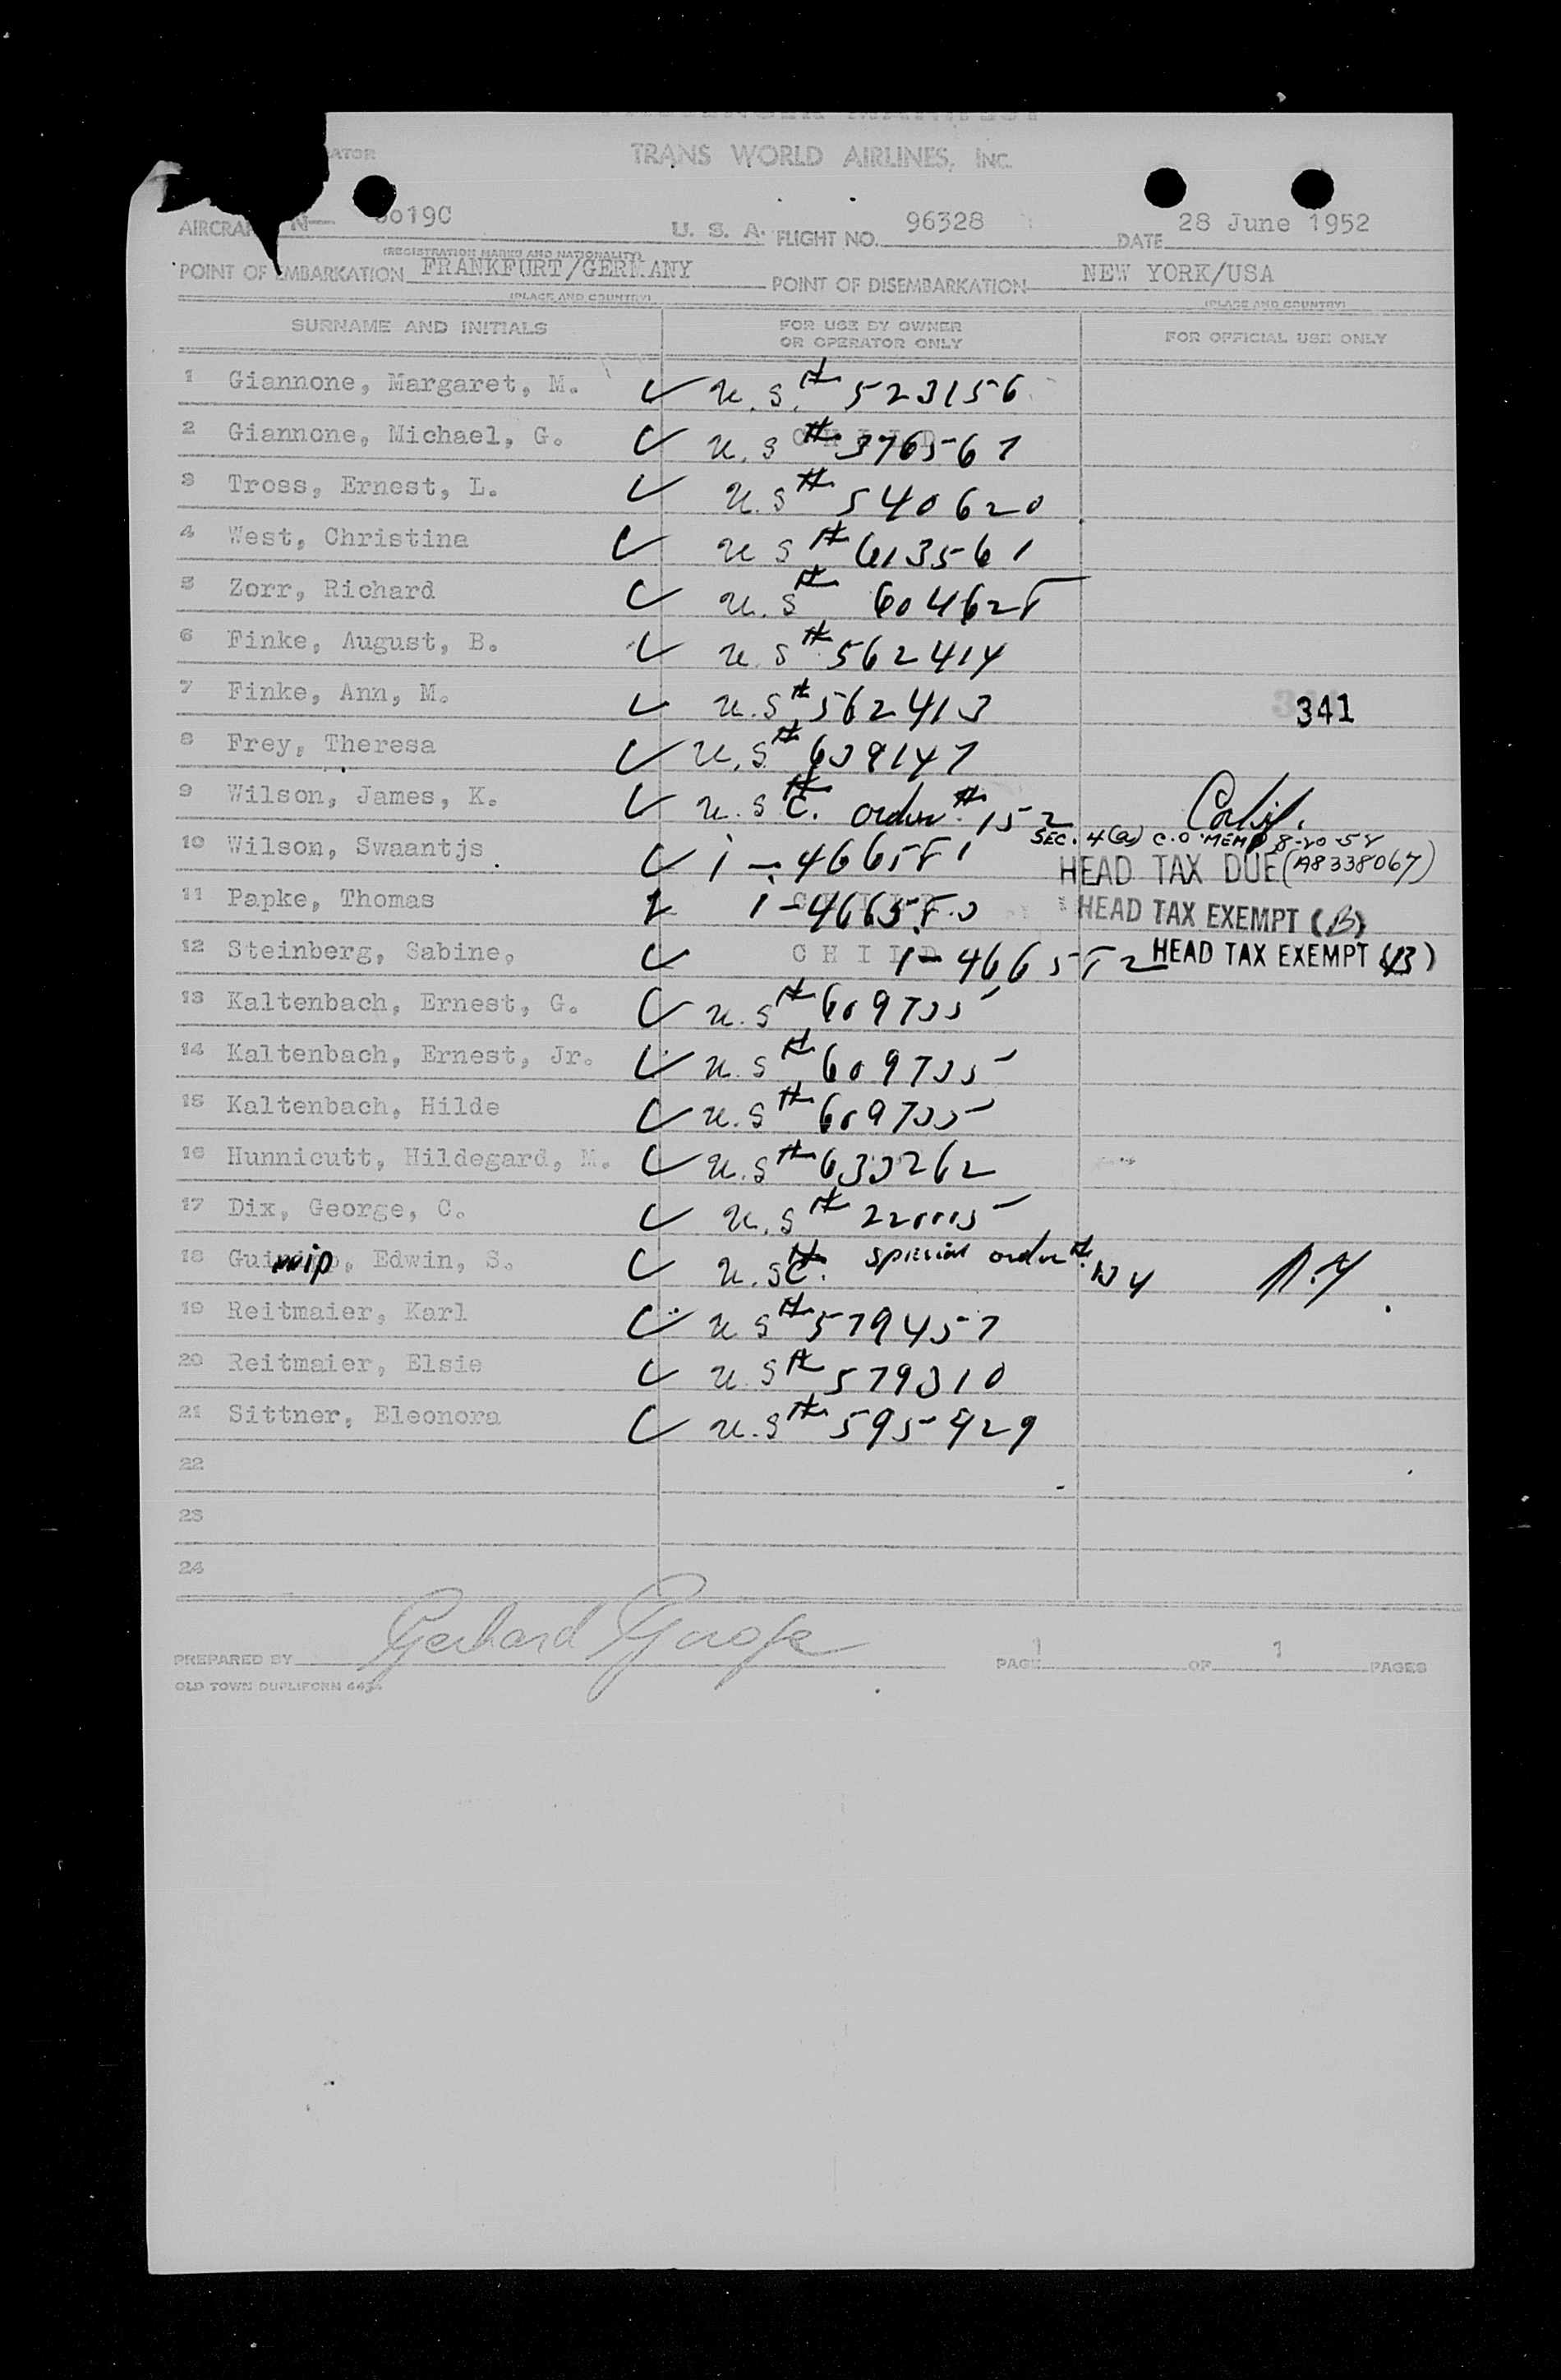 TRANS WORLD AIRLINES, INC.
AIRCRAFT N— 6019C U. S. A. FLIGHT NO. 96328 DATE 28 June 1952
(REGISTRATION MARKS AND NATIONALITY)
POINT OF EMBARKATION FRANKFURT/GERMANY POINT OF DISEMBARKATION NEW YORK/USA
(PLACE AND COUNTRY) (PLACE AND COUNTRY)
SURNAME AND INITIALS FOR USE BY OWNER OR OPERATOR ONLY FOR OFFICIAL USE ONLY
1 Giannone, Margaret, M. U.S. # 523156
2 Giannone, Michael, G. CHILD U.S # 376567
3 Tross, Ernest, L. U.S # 540620
4 West, Christina U S # 613561
5 Zorr, Richard U.S # 604628
6 Finke, August, B. U.S # 562414
7 Finke, Ann, M. U.S # 562413 341
8 Frey, Theresa U.S # 639147
9 Wilson, James, K. U.S.C. order # 152 Calif.
SEC. 4(a) C.O. MEMO 8-20-52
10 Wilson, Swaantjs I-466581 HEAD TAX DUE (A8338067)
11 Papke, Thomas I-466580 HEAD TAX EXEMPT (B)
12 Steinberg, Sabine, CHILD I-466582 HEAD TAX EXEMPT (B)
13 Kaltenbach, Ernest, G. U.S # 609735
14 Kaltenbach, Ernest, Jr. U.S # 609735
15 Kaltenbach, Hilde U.S # 609735
16 Hunnicutt, Hildegard, M. U.S # 633262
17 Dix, George, C. U.S #
18 Edwin, S. U.SC. special order # N.Y
19 Reitmaier, Karl U S # 579457
20 Reitmaier, Elsie U S # 579310
21 Sittner, Eleonora U.S # 595929
22
23
24
PREPARED BY Gerhard PAGE 1 OF 1 PAGES
OLD TOWN DUPLIFORM